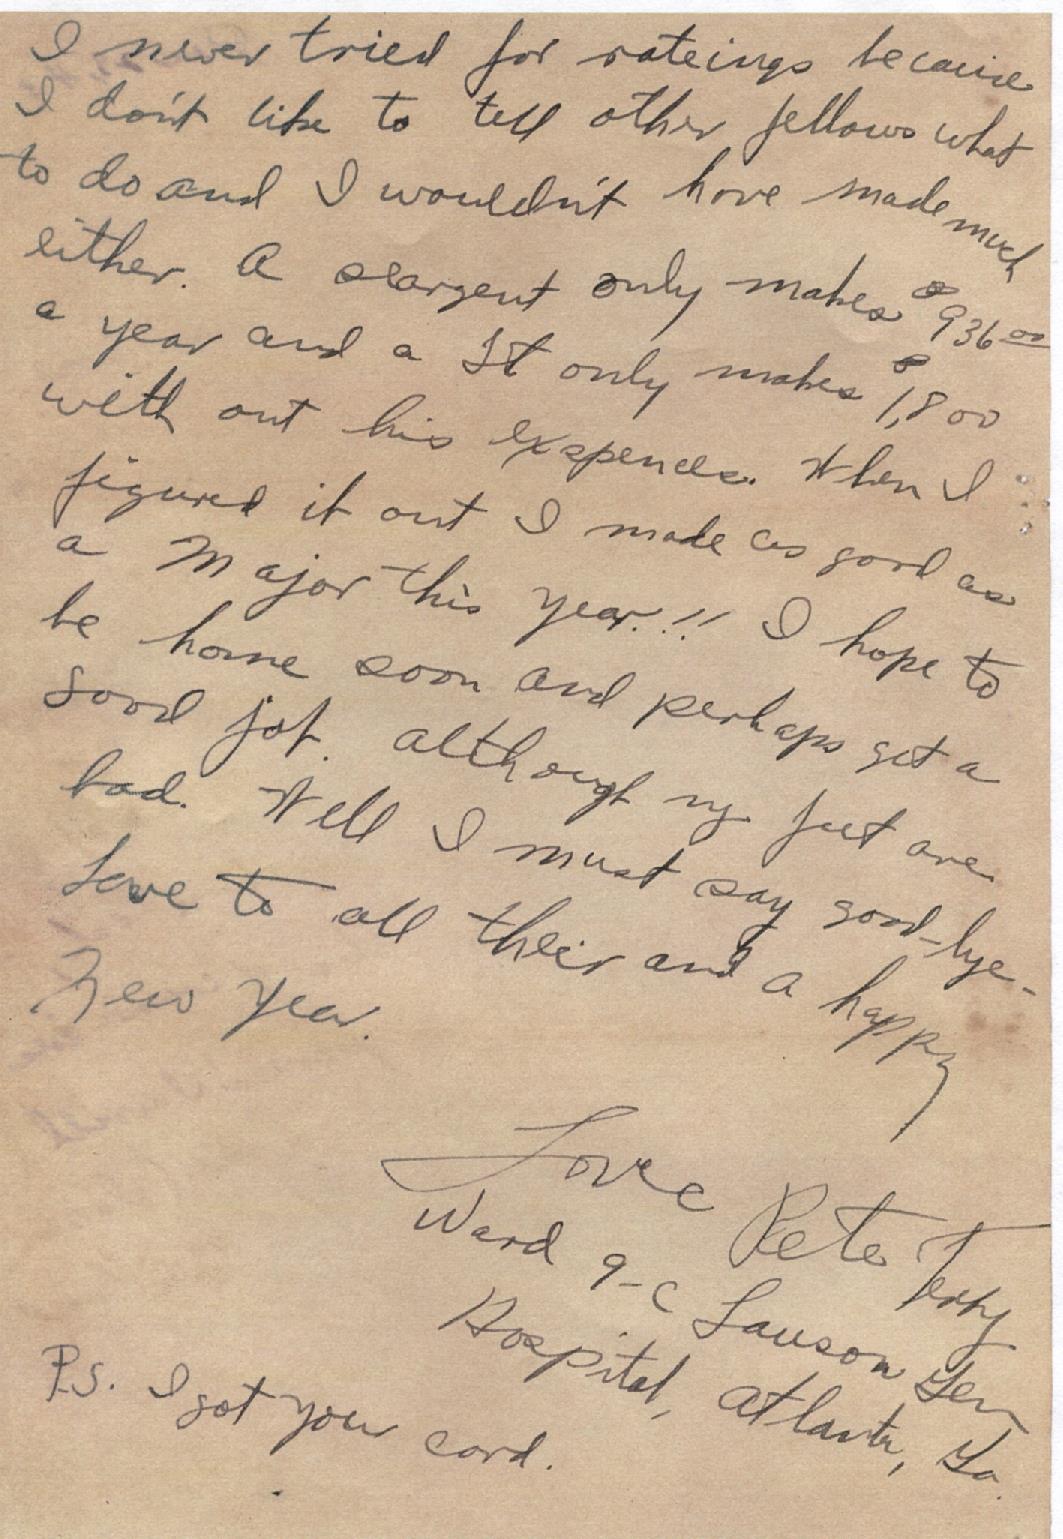 I never tried for rateings because
I don't like to tell other fellows what
to do and I wouldn't have made much
either. A seargent only makes $936.00
a year and a Lt only makes $1,800
with out his exspences. When I
figured it out I made as good as
a Major this year!!! I hope to
be home soon and perhaps get a
good job. although my feet are
bad. Well I must say good-bye-
Love to all their and a happy
New Year.
Love Pete Terry
Ward 9-C Lawson Gen
Hospital, Atlanta, Ga.
P.S. I got your card.